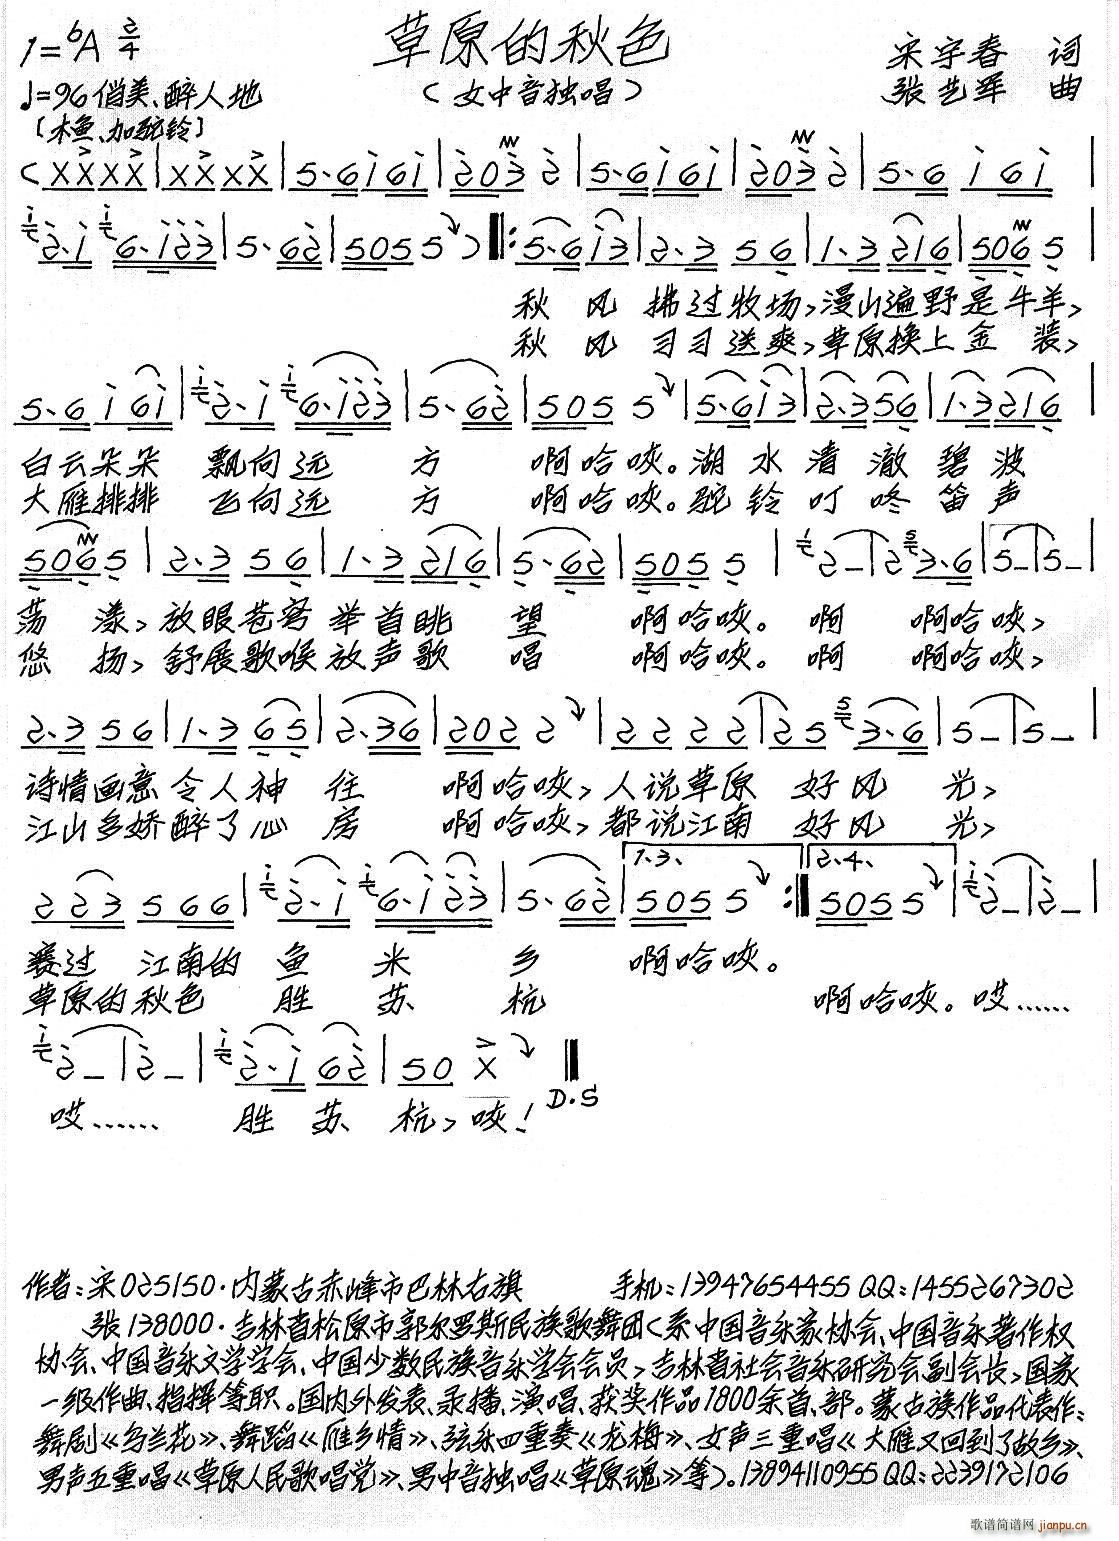 草原的秋色
1=♭A 2/4
宋宇春 词
♩=96 俏美、醉人地
(女中音独唱)
张艺军 曲
(木鱼、加驼铃)
秋风拂过牧场,漫山遍野是牛羊,
秋风习习送爽,草原换上金装,
白云朵朵 飘向远方 啊哈咴。湖水清澈碧波
大雁排排 飞向远方 啊哈咴。驼铃叮咚笛声
荡漾,放眼苍穹举首眺望 啊哈咴。啊 啊哈咴,
悠扬,舒展歌喉放声歌唱 啊哈咴。啊 啊哈咴,
诗情画意令人神往 啊哈咴,人说草原 好风光,
江山多娇醉了心房 啊哈咴,都说江南 好风光,
1、3、 2、4、
赛过 江南的鱼米乡 啊哈咴。
草原的秋色 胜苏杭 啊哈咴。哎……
D.S
哎…… 胜苏杭,咴!
作者:宋 025150·内蒙古赤峰市巴林右旗 手机:13947654455 QQ:1455267302
张 138000·吉林省松原市郭尔罗斯民族歌舞团(系中国音乐家协会、中国音乐著作权
协会、中国音乐文学学会、中国少数民族音乐学会会员,吉林省社会音乐研究会副会长,国家
一级作曲、指挥等职。国内外发表、录播、演唱、获奖作品1800余首、部。蒙古族作品代表作:
舞剧《乌兰花》、舞蹈《雁乡情》、弦乐四重奏《龙梅》、女声三重唱《大雁又回到了故乡》、
男声五重唱《草原人民歌唱党》、男中音独唱《草原魂》等)。13894110955 QQ:2239172106
歌谱简谱网 jianpu.cn